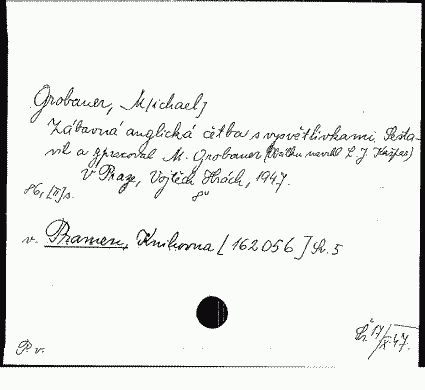 Grobauer, M[ichael]
Zábavná anglická četba s vysvětlivkami. Sesta-
vil a zpracoval M. Grobauer (Obálku navrhl L. J. Kašpar)
V Praze, Vojtěch Hrách, 1947.
8°
86, [II] s.
v. Pramen, Knihovna [162056] Sv. 5
17/IX 47.
P. v.